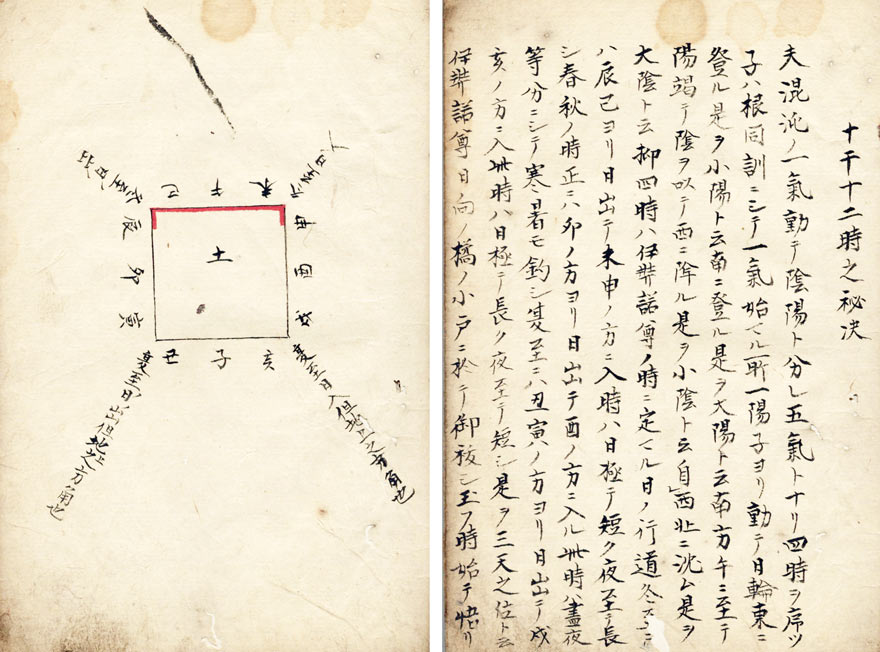 十干十二時之秘決
夫混沌ノ一氣動テ陰陽ト分レ五氣トナリ四時ヲ序ツ
子ハ根同訓ニシテ一氣始マル所一陽子ヨリ動テ日輪東ニ
登ル是ヲ小陽ト云南ニ登ル是ヲ大陽ト云南方午ニ至テ
陽竭テ陰ヲ以テ西ニ降ル是ヲ小陰ト云自西北ニ沈ム是ヲ
大陰ト云抑四時ハ伊弉諾尊ノ時ニ定マル日ノ行道冬至ニ
ハ辰巳ヨリ日出テ未申ノ方ニ入時ハ日極テ短ク夜至テ長
シ春秋ノ時正ニハ卯ノ方ヨリ日出テ酉ノ方ニ入ル此時ハ晝夜
等分ニシテ寒暑モ釣シ夏至ニハ丑寅ハノ方ヨリ日出テ戌
亥ノ方ニ入此時ハ日極テ長ク夜至テ短シ是ヲ三天之位ト云
伊弉諾尊日向ノ橘ノ小戸ニ於テ御祓シ玉フ時始テ悟リ
冬至日入
冬至日出
巳 午 未
申 酉 戌
土
辰 卯 寅
丑 子 亥
夏至日入但地上之方角也
夏至日出但地上之方角也